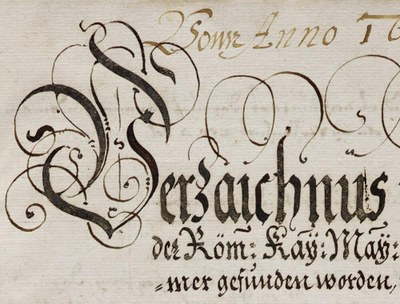 Vonn Anno 16
Verzaichnus
der Röm: Kaÿ: Maÿ:
=mer gefunden worden,